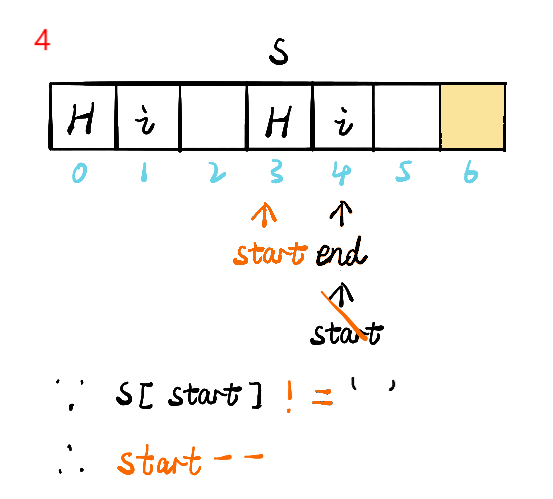 4
S
H i H i
0 1 2 3 4 5 6
start end
start
∵ S[start] != ' '
∴ start--